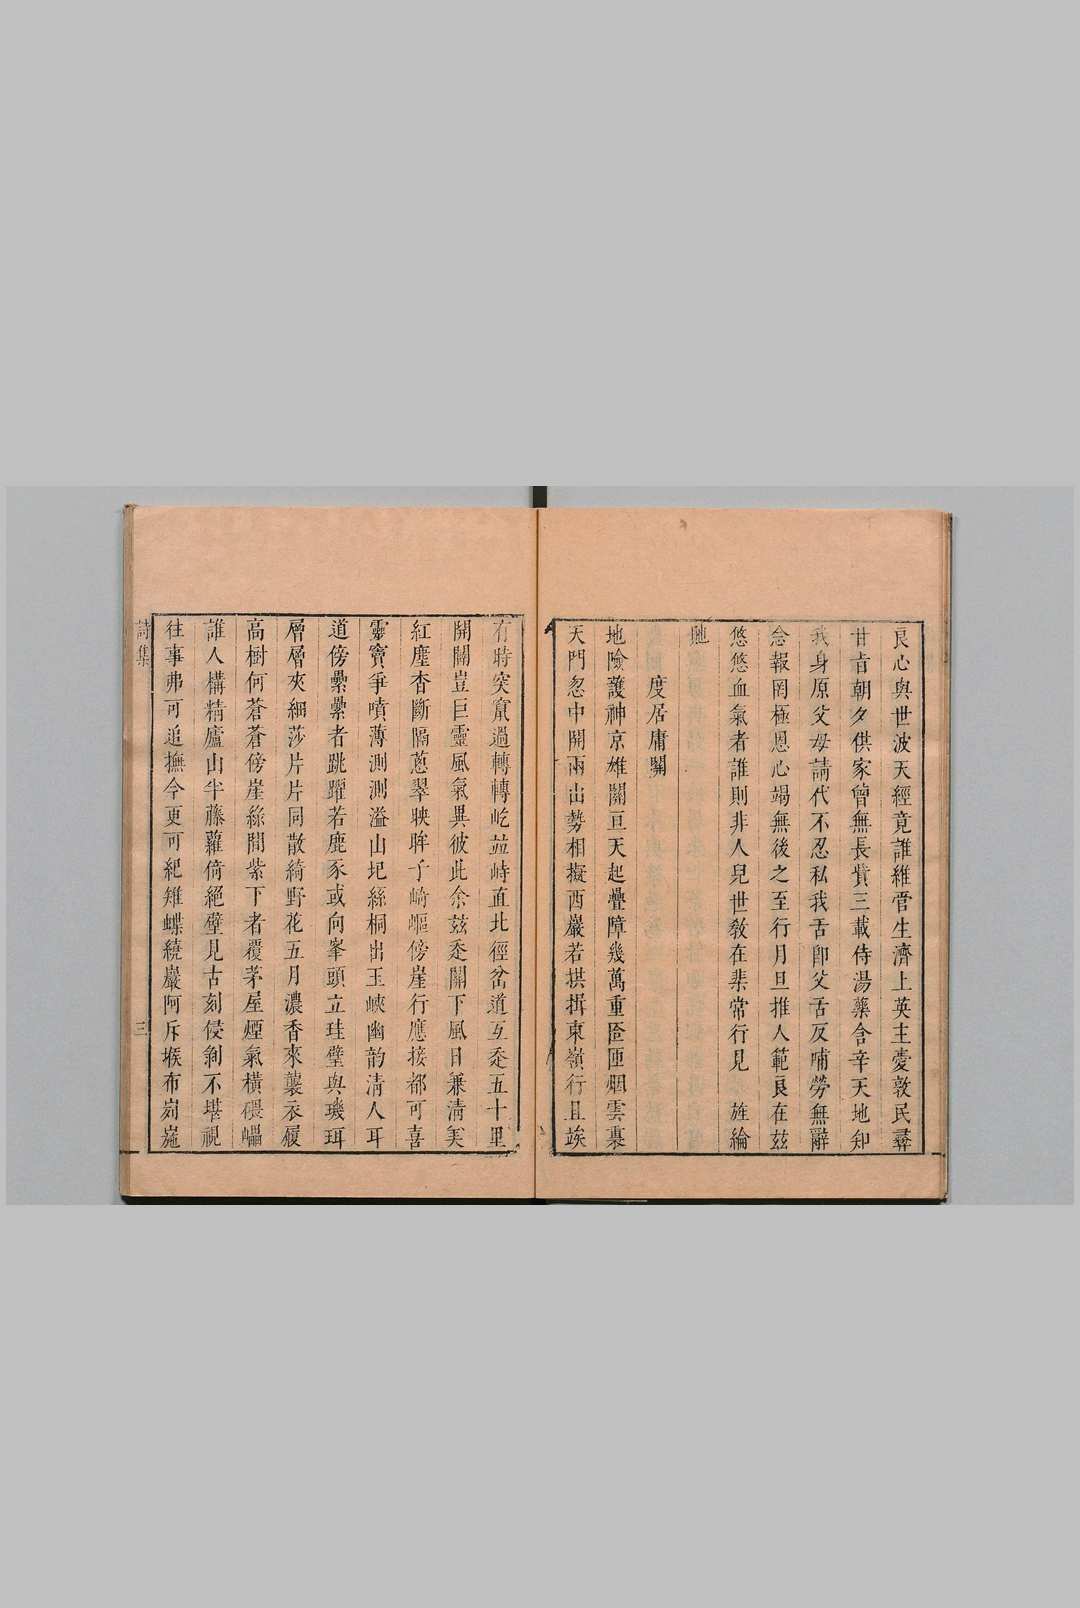 良心與世波天經竟誰維管生濟上英主憂敦民彛
甘旨朝夕供家曾無長貲三載侍湯藥含辛天地知
我身原父母請代不忍私我舌卽父舌反哺勞無辭
念報罔極恩心竭無後之至行月旦推人範良在玆
悠悠血氣者誰則非人兒世敎在棐常行見　旌綸
馳
度居庸關
地險護神京雄關亘天起疊障幾萬重匼匝烟雲裹
天門忽中開兩出勢相擬西巖若拱揖東嶺行且竢
有時突竄過轉轉屹並峙直北徑岔道互乗五十里
開闢豈巨靈風氣異彼此余玆乗關下風日兼清美
紅塵杳斷隔蔥翠映眸子崎嶇傍崖行應接都可喜
靈竇爭噴薄測測溢山圯絲桐出玉峽幽韵淸人耳
道傍纍纍者跳躍若鹿豕或向峯頭立珪璧與璣珥
層層夾細莎片片同散綺野花五月濃香來襲衣履
高樹何蒼蒼傍崖絲間紫下者覆茅屋煙氣橫碨礧
誰人構精廬山半藤蘿倚絕壁見古刻侵剝不堪視
往事弗可追撫今更可紀雉蝶繞巖阿斥堠布峛崺
詩集
三